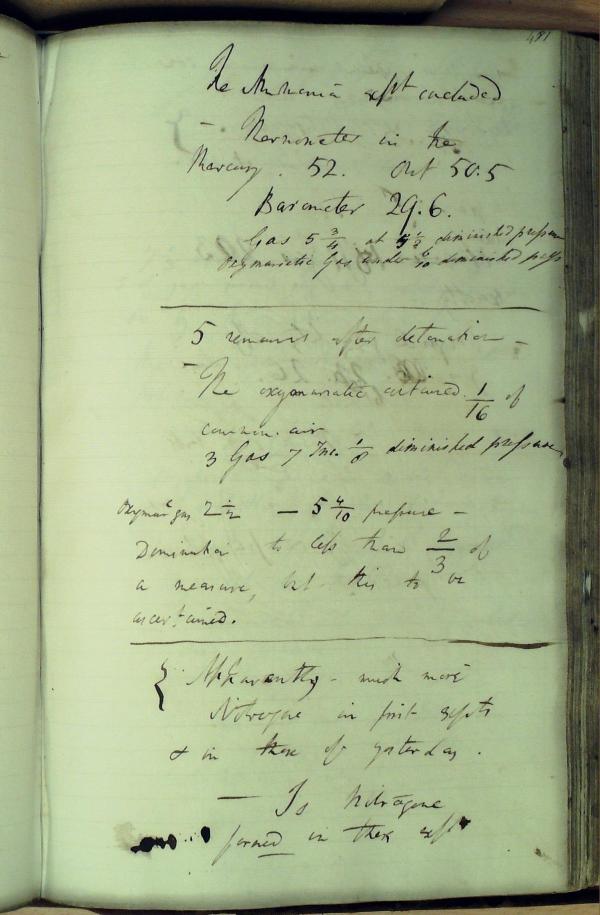 481
The Ammonia expt concluded
— Thermometer in the
Mercury . 52. Out 50.5
Barometer 29.6.
Gas 5 3/4 at 5 1/2 diminished pressure
Oxymuriatic Gas under 6/10 diminished press
5 remains after detonation —
— The oxymuriatic contained 1/16 of
common air
3 Gas 7 Inc. 1/8 diminished pressure
Oxymur gas 2 1/2 — 5 4/10 pressure —
Diminution to less than 2/3 of
a measure, but this to be
ascertained.
{ Apparently — much more
Nitrogene in first expts
& in those of yesterday .
— Is Nitrogene
formed in these expts